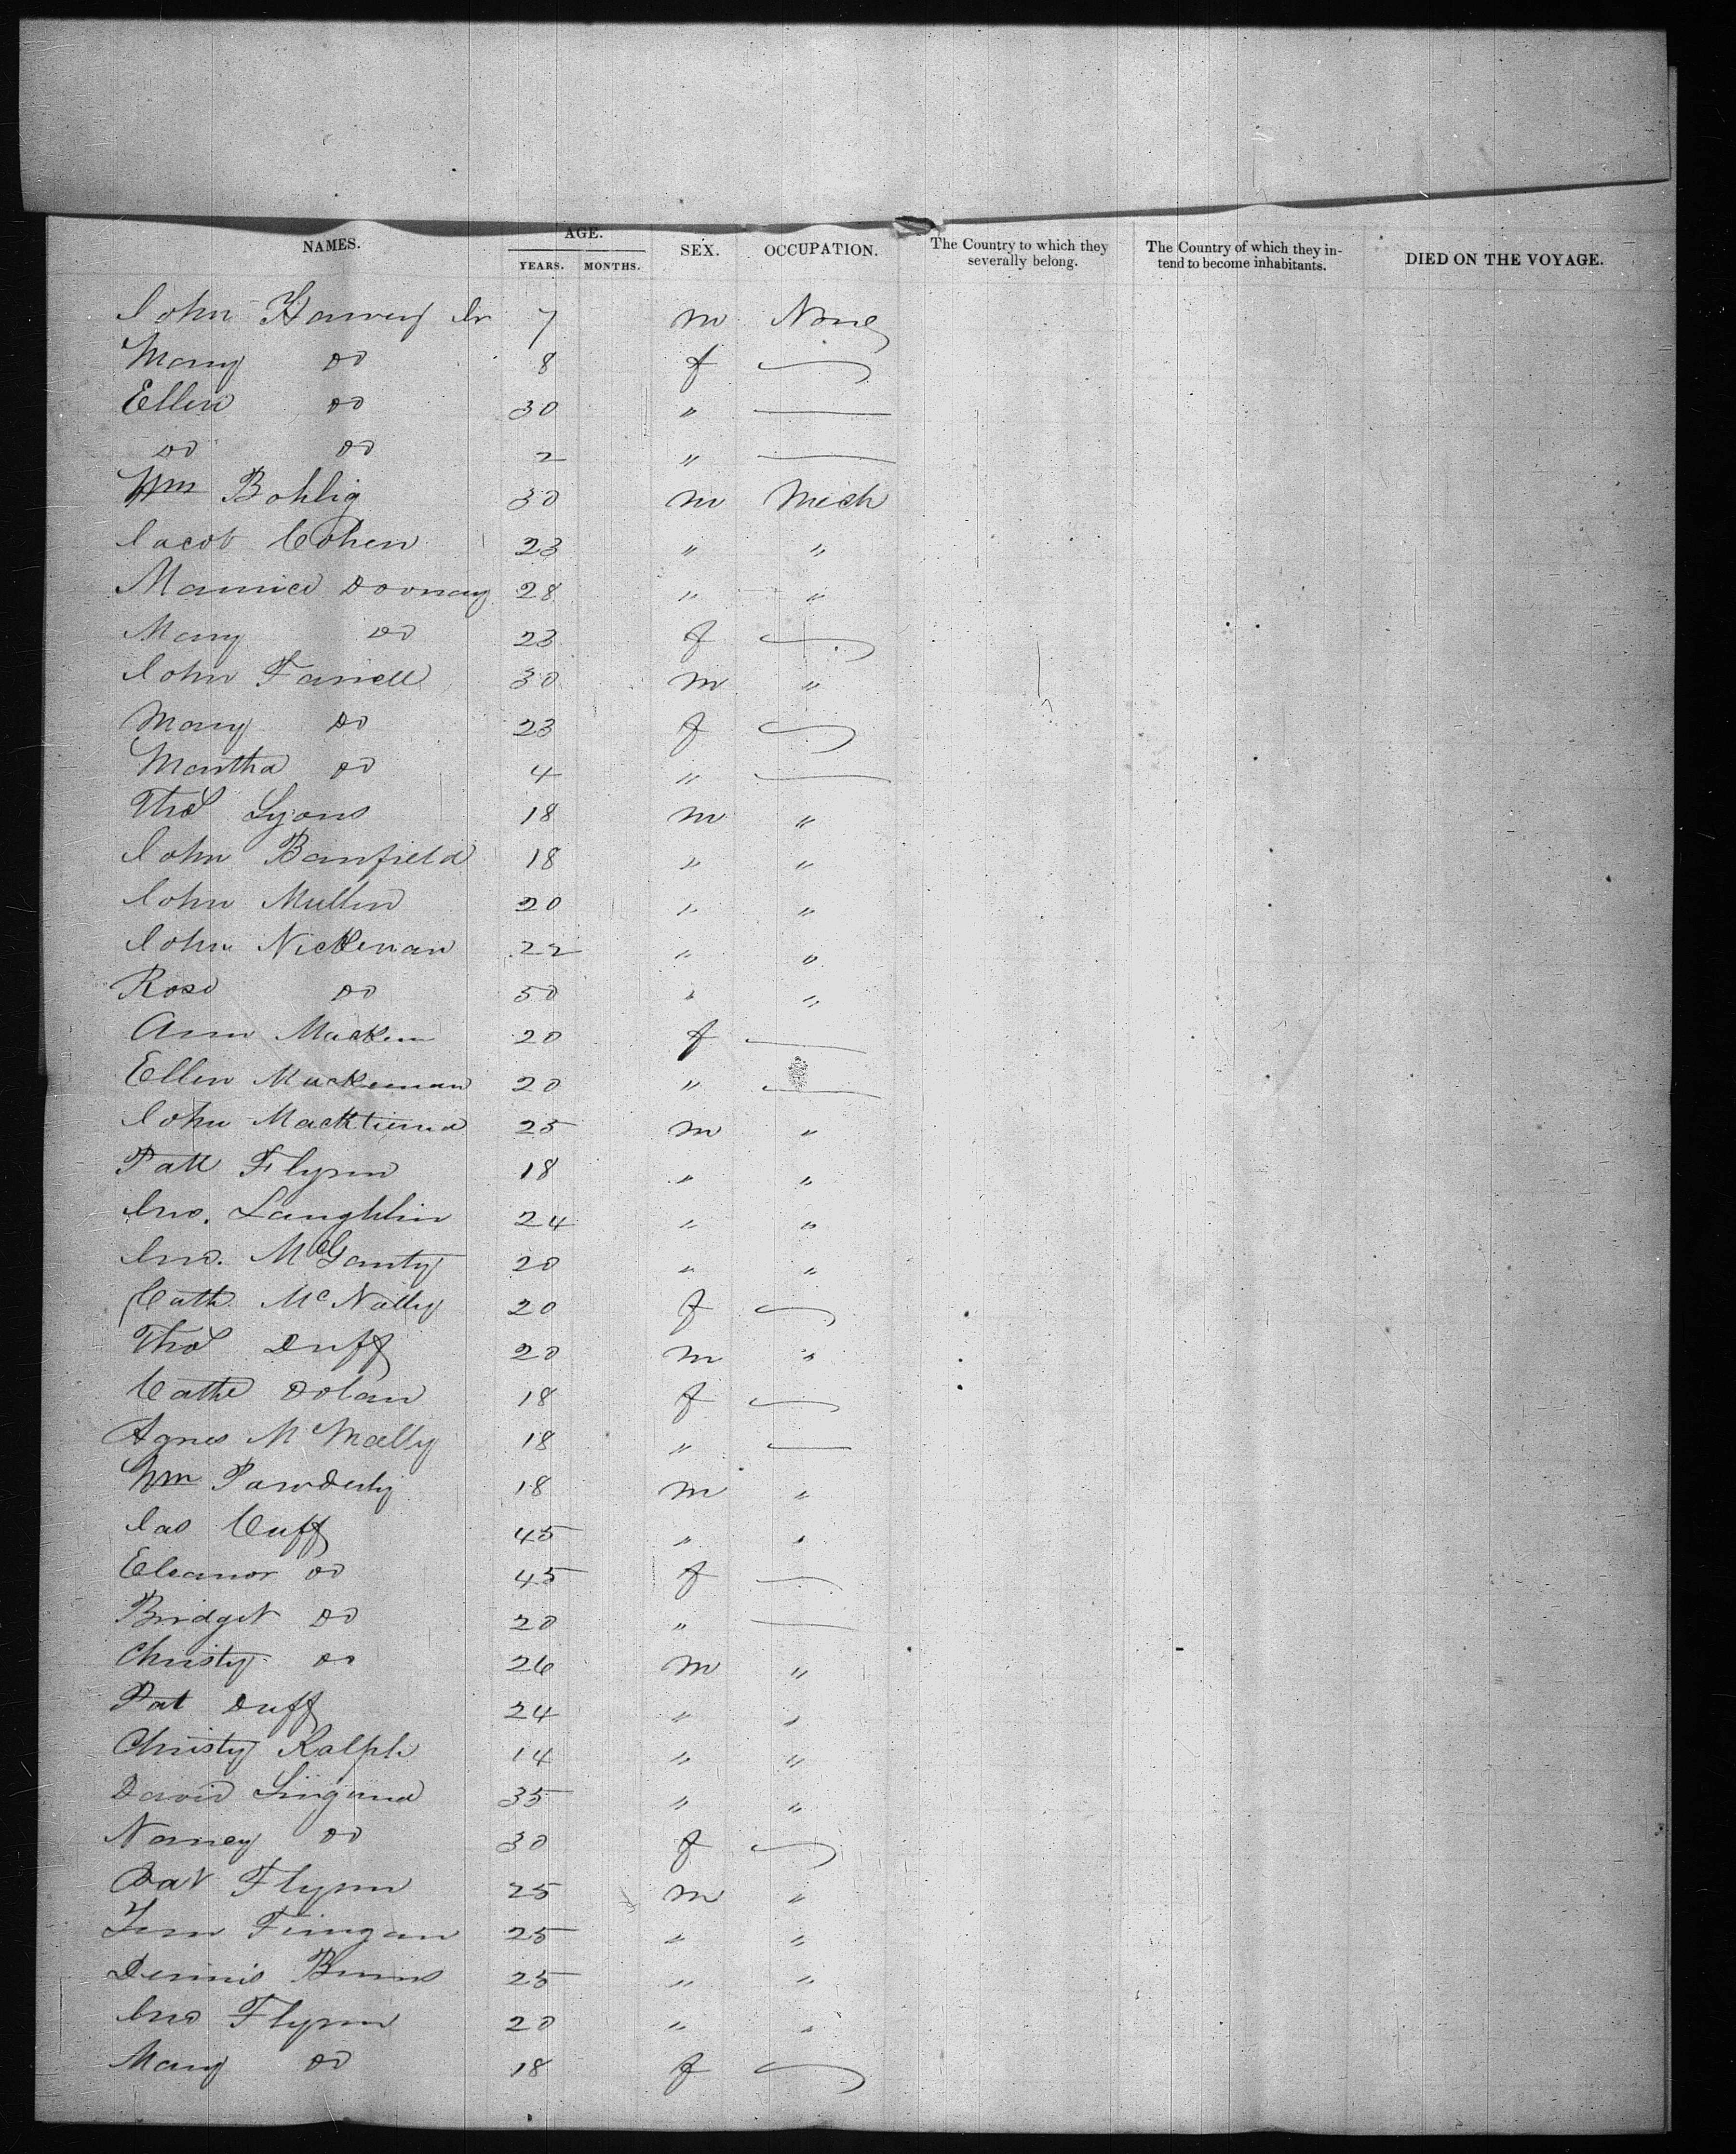 NAMES. AGE. SEX. OCCUPATION. The Country to which they severally belong. The Country of which they in-tend to become inhabitants. DIED ON THE VOYAGE.
YEARS. MONTHS.
John Harvey Jr 7 m None
Mary Do 8 f
Ellen Do 30 "
Do Do 2 "
Wm Bohlig 30 m Mech
Jacob Cohen 23 " "
Maurice Doonay 28 " "
Mary Do 23 f
John Farrell 30 m "
Mary Do 23 f
Martha Do 4 "
Thos Lyons 18 m "
John Banfield 18 " "
John Mullen 20 " "
John 22 " "
Rose Do 50 " "
Ann Macken 20 f
Ellen 20 "
John 25 m "
Patt Flynn 18 " "
Jno. Laughlin 24 " "
Jno. McGanty 20 " "
Cath McNally 20 f
Thos Duff 20 m "
Cathe Dolan 18 f
Agnes McNally 18 "
Wm Powderly 18 m "
Jas Cuff 45 " "
Eleanor Do 45 f
Bridget Do 20 "
Christy Do 26 m "
Pat Duff 24 " "
Christy Ralph 14 " "
David 35 " "
Nancy Do 30 f
Pat Flynn 25 m "
Finngan 25 " "
Dennis Burns 25 " "
Jno Flynn 20 " "
Mary Do 18 f